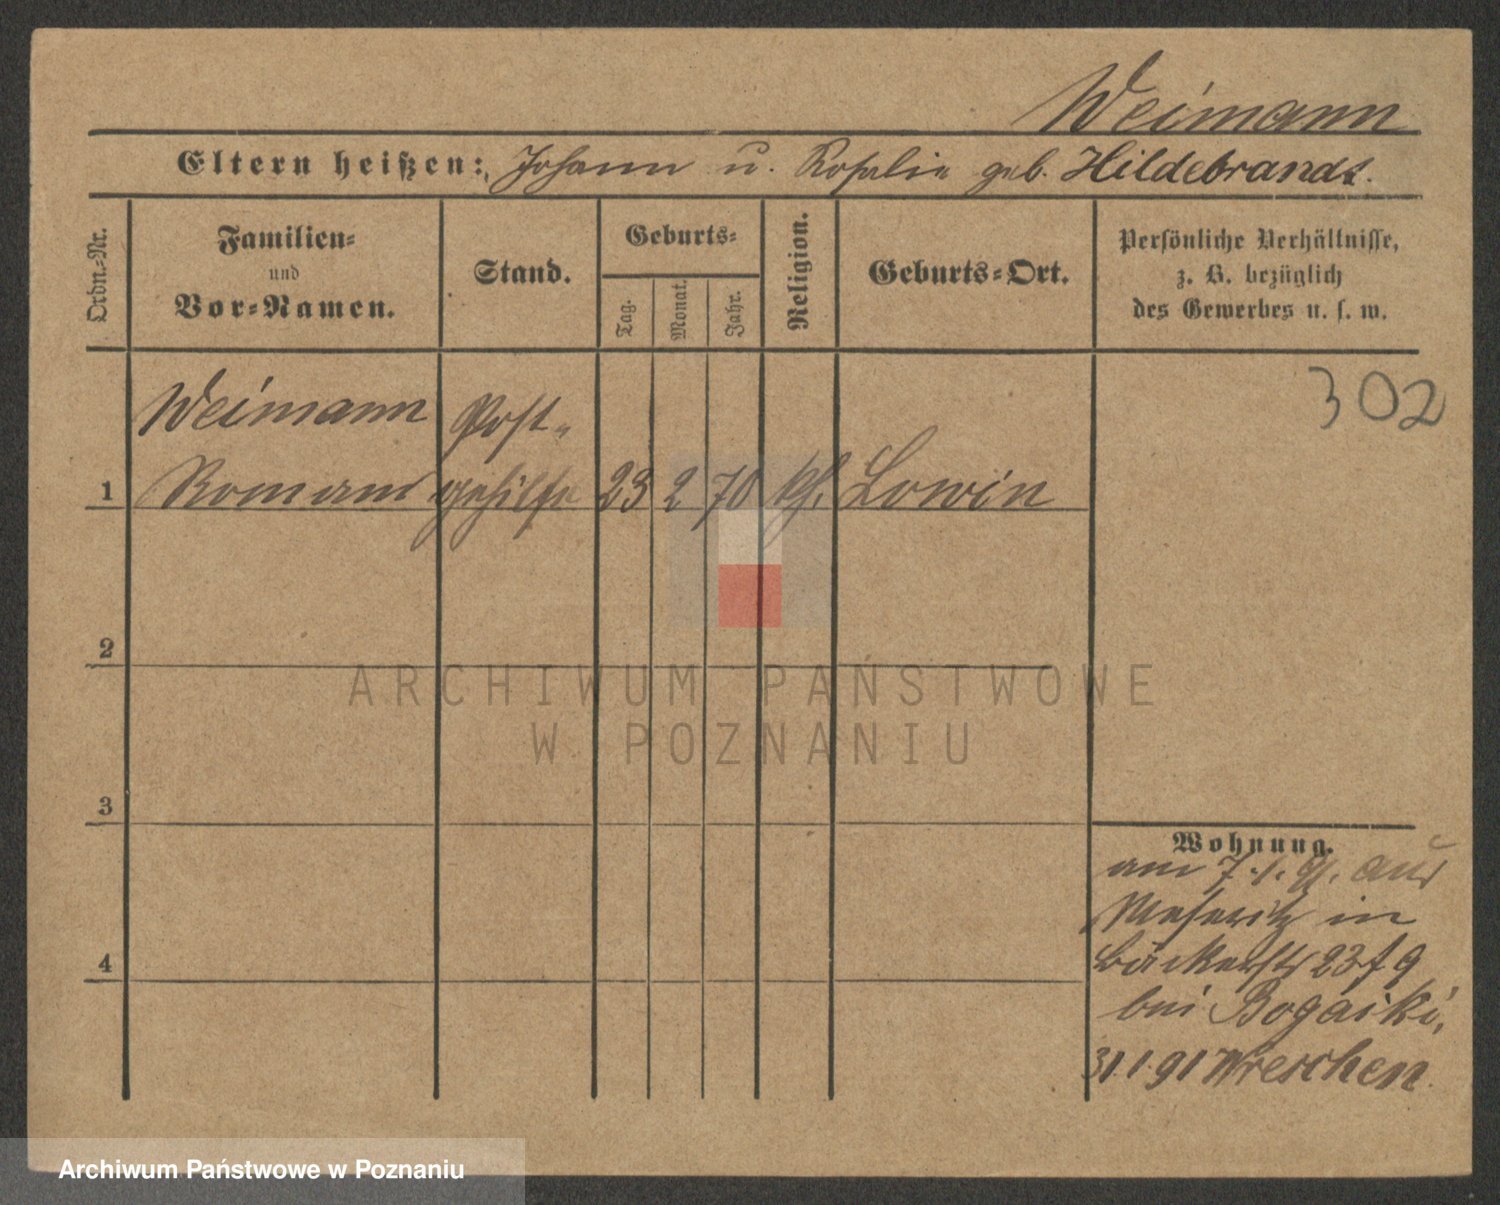 Weimann
Eltern heißen: Johann u. Rosalie geb. Hildebrandt.
Ordn.-Nr.
Familien- und Vor-Namen.
Stand.
Geburts-
Tag.
Monat.
Jahr.
Religion.
Geburts-Ort.
Persönliche Verhältnisse,
z. B. bezüglich
des Gewerbes u. s. w.
302
Weimann Post-
1 Roman gehilfe 23 2 70 kh. Lowin
2
ARCHIWUM PAŃSTWOWE
W POZNANIU
3
Wohnung.
am 7.1.91. aus
Meseritz in
Bäckerstr 23 f 9
bei Bogaiki,
4
31.1.91 Wreschen
Archiwum Państwowe w Poznaniu